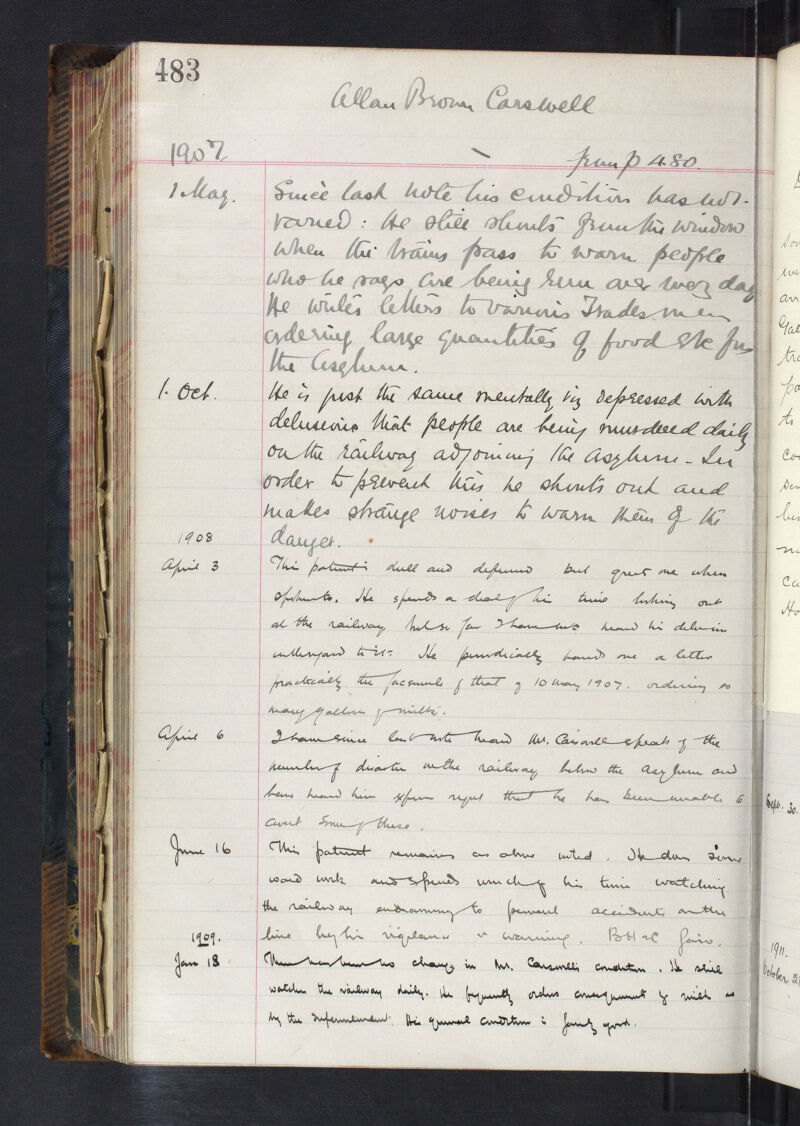 483
Allan Brown Carswell
1907 from p 480.
1 May. Since last note his condition has not
varied: He still shouts from the window
when the trains pass to warn people
who he says are being run over every day
He writes letters to various Tradesmen
ordering large quantities of food etc for
the Asylum.
1. Oct. He is just the same mentally viz depressed with
delusions that people are being murdered daily
on the railway adjoining the Asylum - In
order to prevent this he shouts out and
makes strange noises to warn them of the
danger.
1908
April 3 This patient is dull and depressed but greets me when
spoken to. He spends a deal of his time looking out
at the railway but so far I have not heard his delusion
with regard to it. He periodically hands me a letter
practically the facsimile of that of 10 May 1907. ordering so
many gallons of milk.
April 6 I have since last note heard Mr. Carswell speak of the
number of disasters on the railway below the Asylum and
have heard him express regret that he has been unable to
avert some of these.
June 16 This patient remains as above noted. He does some
ward work and spends much of his time watching
the railway endeavouring to prevent accidents on the
line by his vigilance & warning. B H & C fair.
1909.
Jan 18 There has been no change in Mr. Carswell's condition. He still
watches the railway daily. He frequently orders consignments of milk as
by the Superintendent. His general condition is fairly good.
Sept. 30.
1911.
October 2